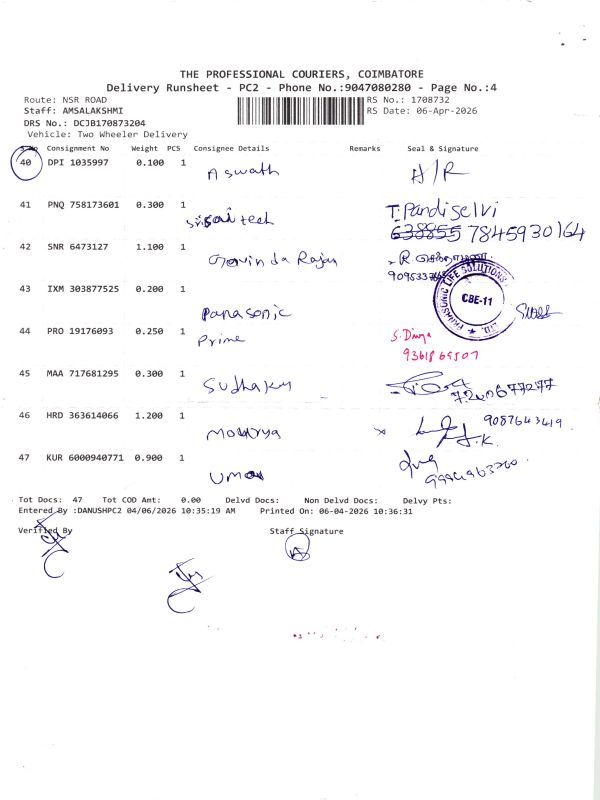 THE PROFESSIONAL COURIERS, COIMBATORE
Delivery Runsheet - PC2 - Phone No.:9047080280 - Page No.:4
Route: NSR ROAD RS No.: 1708732
Staff: AMSALAKSHMI RS Date: 06-Apr-2026
DRS No.: DCJB170873204
Vehicle: Two Wheeler Delivery
S.No Consignment No Weight PCS Consignee Details Remarks Seal & Signature
40 DPI 1035997 0.100 1 Aswath H/R
41 PNQ 758173601 0.300 1 srisai tech T. Pandiselvi
638855 7845930164
42 SNR 6473127 1.100 1 Govinda Rajan
43 IXM 303877525 0.200 1 Panasonic
PANASONIC LIFE SOLUTIONS LTD. CBE-11
44 PRO 19176093 0.250 1 Prime S. Divya
45 MAA 717681295 0.300 1 Sudhakar
46 HRD 363614066 1.200 1 Mourya x 9087643419
47 KUR 6000940771 0.900 1 Uma
Tot Docs: 47 Tot COD Amt: 0.00 Delvd Docs: Non Delvd Docs: Delvy Pts:
Entered By :DANUSHPC2 04/06/2026 10:35:19 AM Printed On: 06-04-2026 10:36:31
Verified By Staff Signature